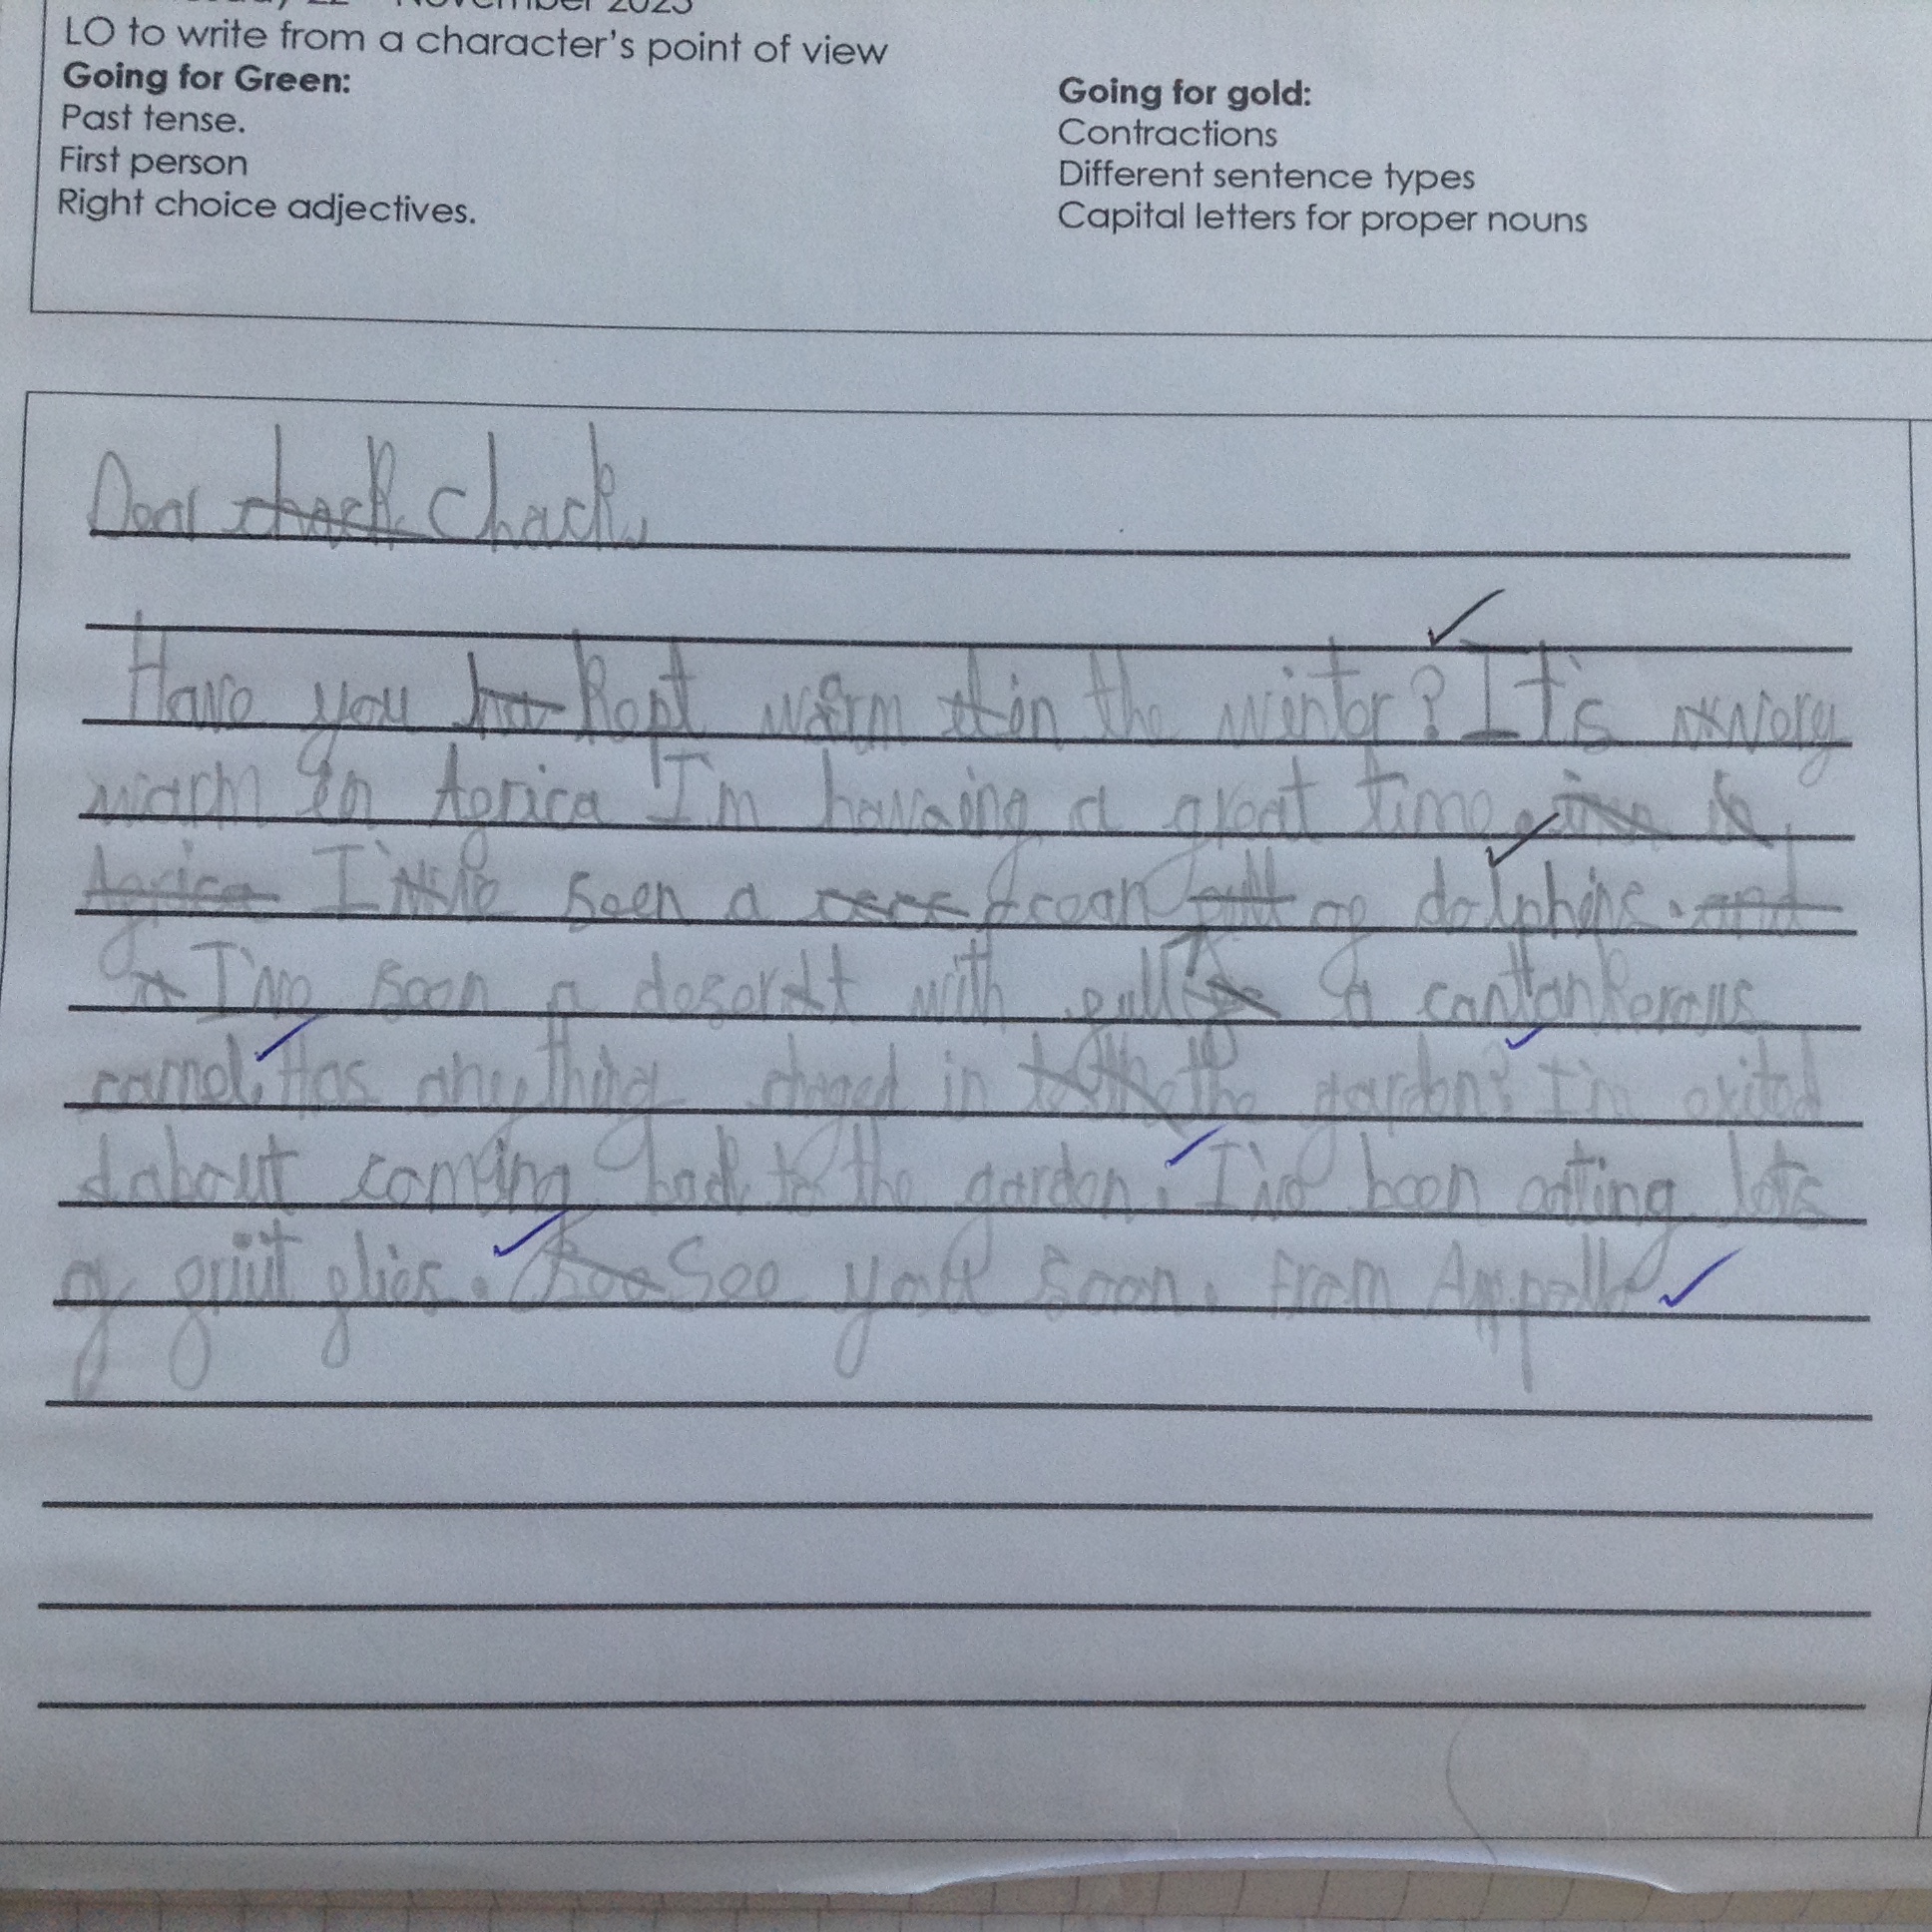 November 2023
LO to write from a character's point of view
Going for Green:
Past tense.
First person
Right choice adjectives.
Going for gold:
Contractions
Different sentence types
Capital letters for proper nouns
Dear chack Chack,
Have you ha kept warm in the winter? It's very
warm in Africa I'm having a great time. in
Africa I've seen a ocean full of dolphins. and
I've seen a desert with full a cantankerous
camel. Has anything chaged in the garden? I'm exited
about coming back to the garden. I've been eating lots
of fruit flies. See you soon. From Appollo